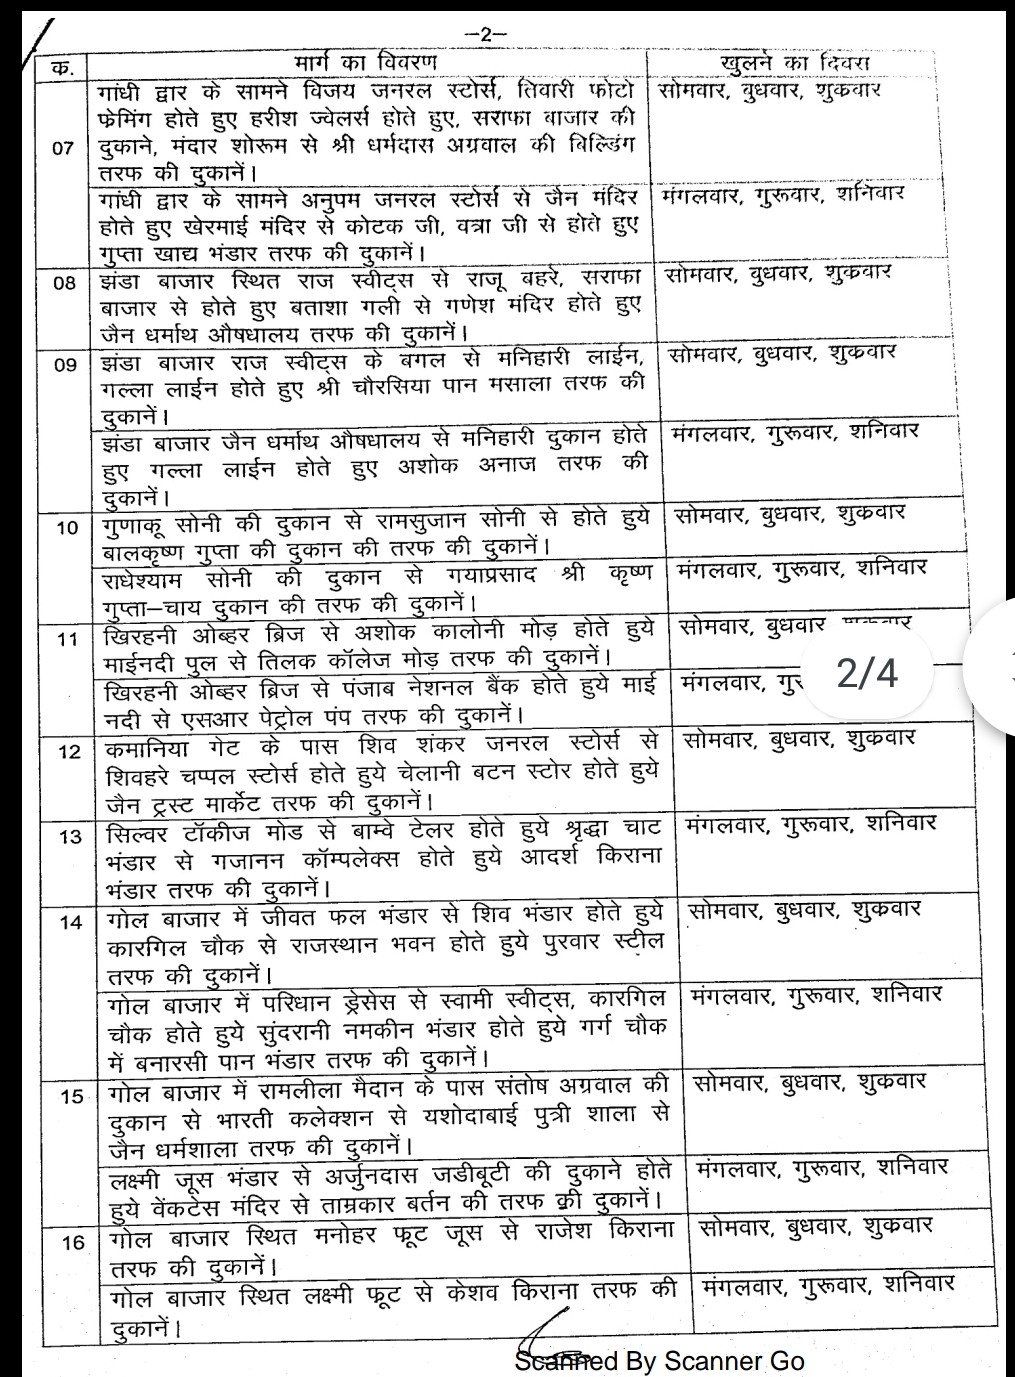 –2–
क. मार्ग का विवरण खुलने का दिवस
07 गांधी द्वार के सामने विजय जनरल स्टोर्स, तिवारी फोटो सोमवार, बुधवार, शुकवार
फेमिंग होते हुए हरीश ज्वेलर्स होते हुए, सराफा बाजार की
दुकाने, मंदार शोरूम से श्री धर्मदास अग्रवाल की बिल्डिंग
तरफ की दुकानें।
गांधी द्वार के सामने अनुपम जनरल स्टोर्स से जैन मंदिर मंगलवार, गुरूवार, शनिवार
होते हुए खेरमाई मंदिर से कोटक जी, वत्रा जी से होते हुए
गुप्ता खाद्य भंडार तरफ की दुकानें।
08 झंडा बाजार स्थित राज स्वीट्स से राजू बहरे, सराफा सोमवार, बुधवार, शुकवार
बाजार से होते हुए बताशा गली से गणेश मंदिर होते हुए
जैन धर्माथ औषधालय तरफ की दुकानें।
09 झंडा बाजार राज स्वीट्स के बगल से मनिहारी लाईन, सोमवार, बुधवार, शुकवार
गल्ला लाईन होते हुए श्री चौरसिया पान मसाला तरफ की
दुकानें।
झंडा बाजार जैन धर्माथ औषधालय से मनिहारी दुकान होते मंगलवार, गुरूवार, शनिवार
हुए गल्ला लाईन होते हुए अशोक अनाज तरफ की
दुकानें।
10 गुणाकू सोनी की दुकान से रामसुजान सोनी से होते हुये सोमवार, बुधवार, शुकवार
बालकृष्ण गुप्ता की दुकान की तरफ की दुकानें।
राधेश्याम सोनी की दुकान से गयाप्रसाद श्री कृष्ण मंगलवार, गुरूवार, शनिवार
गुप्ता–चाय दुकान की तरफ की दुकानें।
11 खिरहनी ओव्हर ब्रिज से अशोक कालोनी मोड़ होते हुये सोमवार, बुधवार
माईनदी पुल से तिलक कॉलेज मोड़ तरफ की दुकानें।
2/4
खिरहनी ओव्हर ब्रिज से पंजाब नेशनल बैंक होते हुये माई मंगलवार,
नदी से एसआर पेट्रोल पंप तरफ की दुकानें।
12 कमानिया गेट के पास शिव शंकर जनरल स्टोर्स से सोमवार, बुधवार, शुकवार
शिवहरे चप्पल स्टोर्स होते हुये चेलानी बटन स्टोर होते हुये
जैन ट्रस्ट मार्केट तरफ की दुकानें।
13 सिल्वर टॉकीज मोड से बाम्वे टेलर होते हुये श्रृद्धा चाट मंगलवार, गुरूवार, शनिवार
भंडार से गजानन कॉम्पलेक्स होते हुये आदर्श किराना
भंडार तरफ की दुकानें।
14 गोल बाजार में जीवत फल भंडार से शिव भंडार होते हुये सोमवार, बुधवार, शुकवार
कारगिल चौक से राजस्थान भवन होते हुये पुरवार स्टील
तरफ की दुकानें।
गोल बाजार में परिधान ड्रेसेस से स्वामी स्वीट्स, कारगिल मंगलवार, गुरूवार, शनिवार
चौक होते हुये सुंदरानी नमकीन भंडार होते हुये गर्ग चौक
में बनारसी पान भंडार तरफ की दुकानें।
15 गोल बाजार में रामलीला मैदान के पास संतोष अग्रवाल की सोमवार, बुधवार, शुकवार
दुकान से भारती कलेक्शन से यशोदाबाई पुत्री शाला से
जैन धर्मशाला तरफ की दुकानें।
लक्ष्मी जूस भंडार से अर्जुनदास जडीबूटी की दुकाने होते मंगलवार, गुरूवार, शनिवार
हुये वेंकटेस मंदिर से ताम्रकार बर्तन की तरफ की दुकानें।
16 गोल बाजार स्थित मनोहर फूट जूस से राजेश किराना सोमवार, बुधवार, शुकवार
तरफ की दुकानें।
गोल बाजार स्थित लक्ष्मी फूट से केशव किराना तरफ की मंगलवार, गुरूवार, शनिवार
दुकानें।
Scanned By Scanner Go